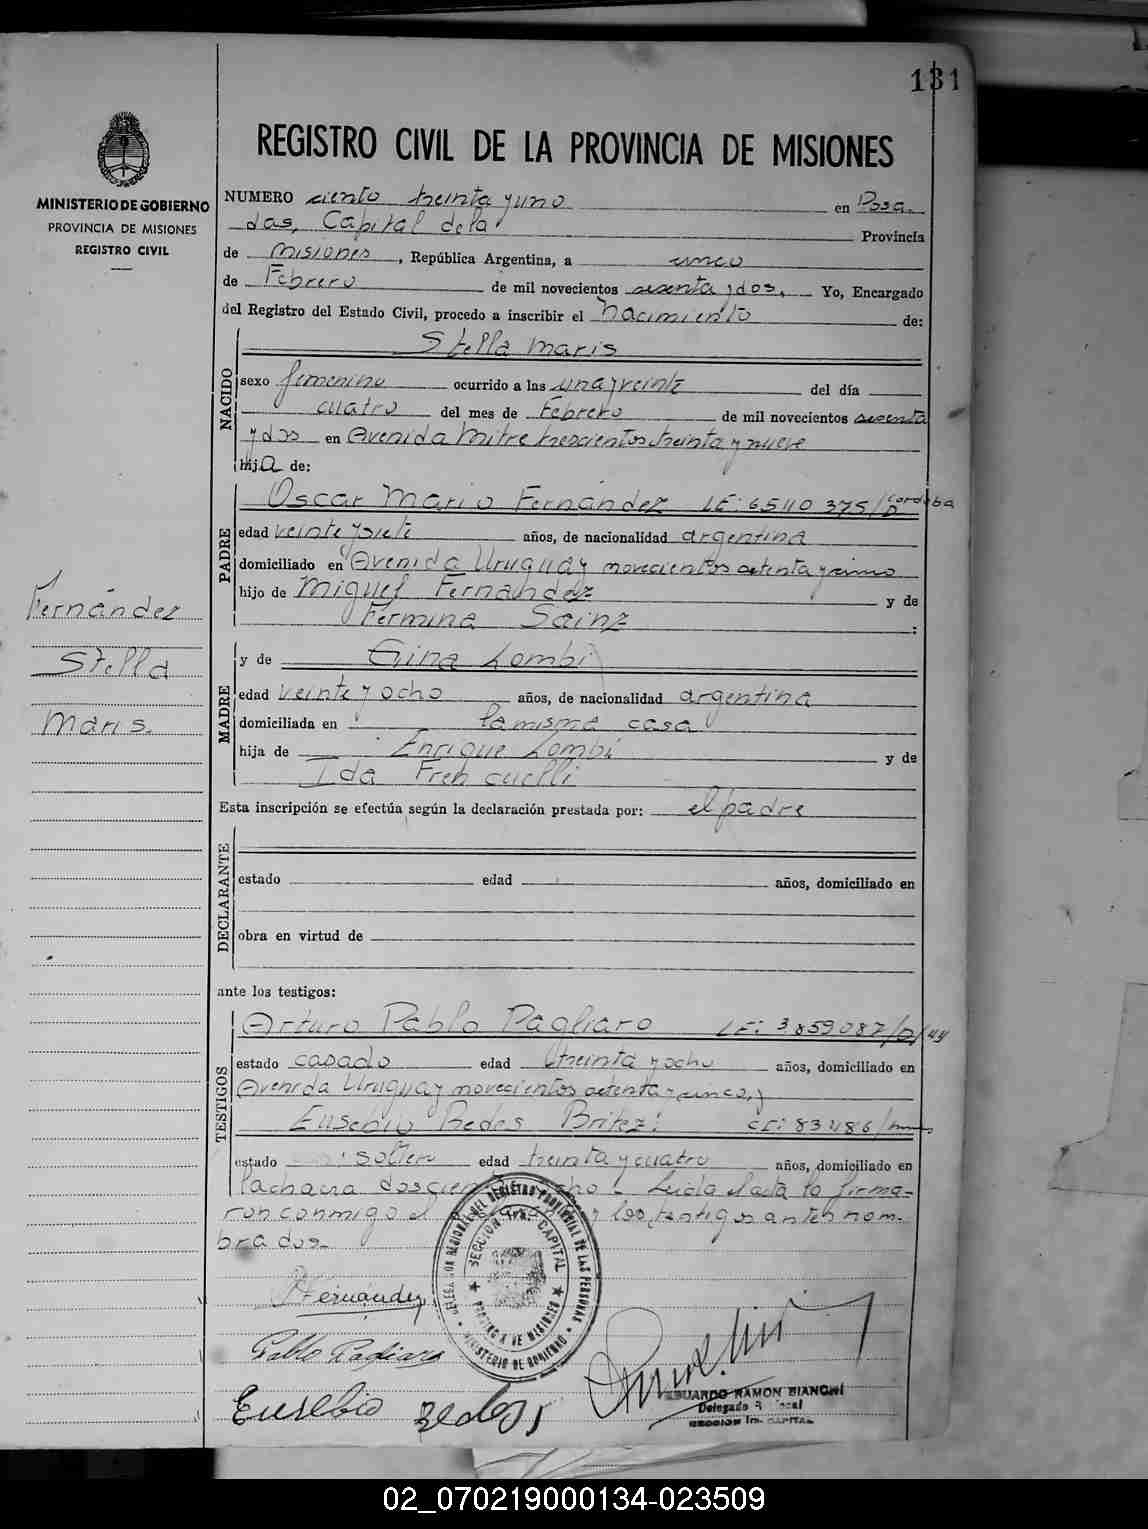 131
REGISTRO CIVIL DE LA PROVINCIA DE MISIONES
MINISTERIO DE GOBIERNO
PROVINCIA DE MISIONES
REGISTRO CIVIL
NUMERO ciento treinta y uno en Posa-
das, Capital de la Provincia
de Misiones, República Argentina, a cinco
de Febrero de mil novecientos sesenta y dos, Yo, Encargado
del Registro del Estado Civil, procedo a inscribir el Nacimiento de:
NACIDO
Stella Maris
sexo femenino ocurrido a las una y veinte del día
cuatro del mes de Febrero de mil novecientos sesenta
y dos en Avenida Mitre trescientos treinta y nueve
hija de:
PADRE
Oscar Mario Fernández LE: 6510375/D Cordoba
edad veinte y siete años, de nacionalidad argentina
domiciliado en Avenida Uruguay novecientos setenta y cinco
hijo de Miguel Fernández y de
Fermina Sainz :
Fernández
Stella
Maris.
MADRE
y de Gina Lombi
edad veinte y ocho años, de nacionalidad argentina
domiciliada en la misma casa
hija de Enrique Lombi y de
Ida
Esta inscripción se efectúa según la declaración prestada por: el padre
DECLARANTE
estado edad años, domiciliado en
obra en virtud de
ante los testigos:
TESTIGOS
Arturo Pablo Pagliaro LE: 3.859.087/D/44
estado casado edad treinta y ocho años, domiciliado en
Avenida Uruguay novecientos setenta y cinco, y
Eusebio Redes Britez: CI: 83486/
estado soltero edad treinta y cuatro años, domiciliado en
la chacra Leida el acta la firma-
ron conmigo el los testigos antes nom-
brados.-
DELEGACION REGIONAL DEL REGISTRO PROVINCIAL DE LAS PERSONAS
SECCION 1ra. CAPITAL
PROVINCIA DE MISIONES
MINISTERIO DE GOBIERNO
Fernández
Pablo Pagliaro
Eusebio Redes
EDUARDO RAMON BIANCHI
Delegado Regional
SECCION 1ra. CAPITAL
02_070219000134-023509